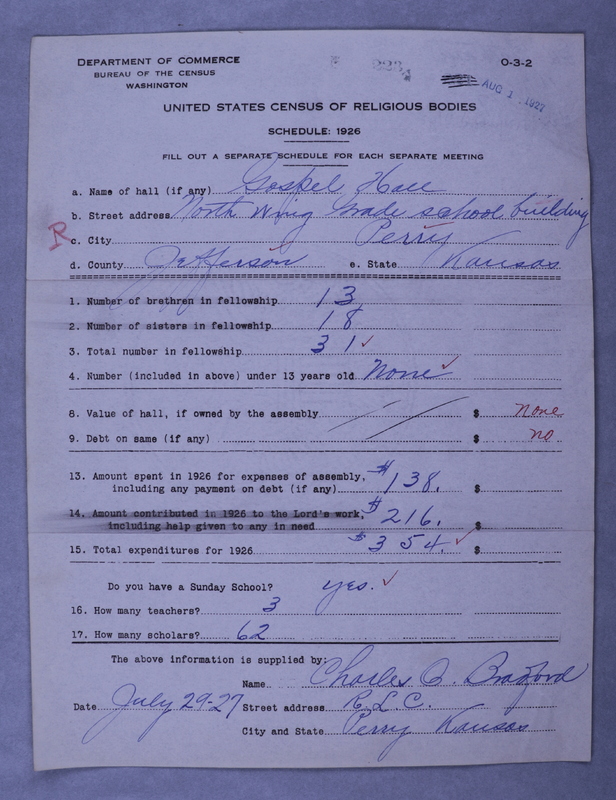 DEPARTMENT OF COMMERCE
BUREAU OF THE CENSUS
WASHINGTON
O-3-2
AUG 1, 1927
UNITED STATES CENSUS OF RELIGIOUS BODIES
SCHEDULE: 1926
FILL OUT A SEPARATE SCHEDULE FOR EACH SEPARATE MEETING
a. Name of hall (if any) Gospel Hall
b. Street address North Wing Grade school building
R
c. City Perry
d. County Jefferson e. State Kansas
1. Number of brethren in fellowship 13
2. Number of sisters in fellowship 18
3. Total number in fellowship 31 ✓
4. Number (included in above) under 13 years old None ✓
8. Value of hall, if owned by the assembly $ none
9. Debt on same (if any) $ no
13. Amount spent in 1926 for expenses of assembly,
including any payment on debt (if any) $138. $
14. Amount contributed in 1926 to the Lord's work,
including help given to any in need $216. $
15. Total expenditures for 1926 $354. ✓ $
Do you have a Sunday School? yes. ✓
16. How many teachers? 3
17. How many scholars? 62
The above information is supplied by:
Name Charles O. Bradford
Date July 29-27 Street address R.L.C.
City and State Perry Kansas